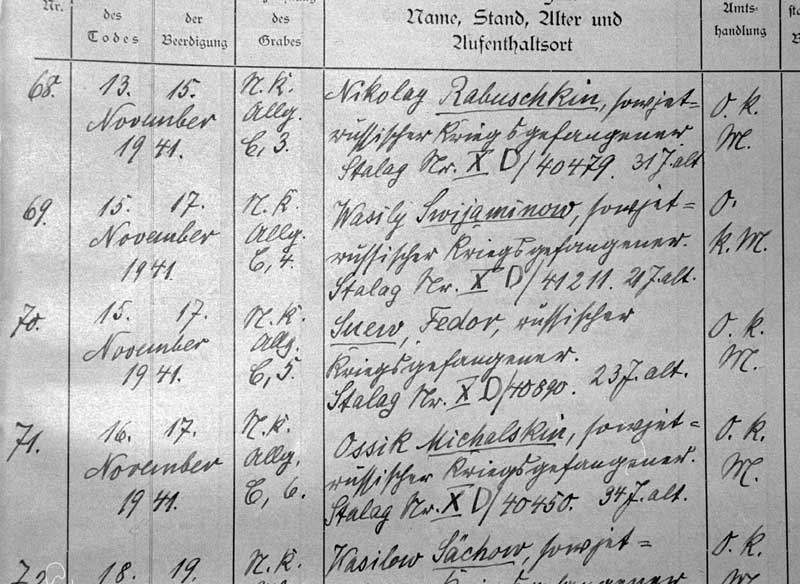 Nr. des Todes der Beerdigung des Grabes Name, Stand, Alter und Aufenthaltsort Amtshandlung
68. 13. 15. N. K. Nikolay Rabuschkin, sowjet=
November Allg. russischer Kriegsgefangener O. K.
1941. C, 3. Stalag Nr. X D/40479. 31 J. alt M.
69. 15. 17. N. K. Wasilj Swijaminow, sowjet= O.
November Allg. russischer Kriegsgefangener. K. M.
1941. C, 4. Stalag Nr. X D/41211. 21 J. alt.
70. 15. 17. N. K. Suew, Fedor, russischer O. K.
November Allg. Kriegsgefangener. M.
1941. C, 5. Stalag Nr. X D/40890. 23 J. alt.
71. 16. 17. N. K. Ossik Michalskin, sowjet= O. K.
November Allg. russischer Kriegsgefangener. M.
1941. C, 6. Stalag Nr. X D/40450. 34 J. alt.
72. 18. 19. N. K. Wasilow Sächow, sowjet= O. K.